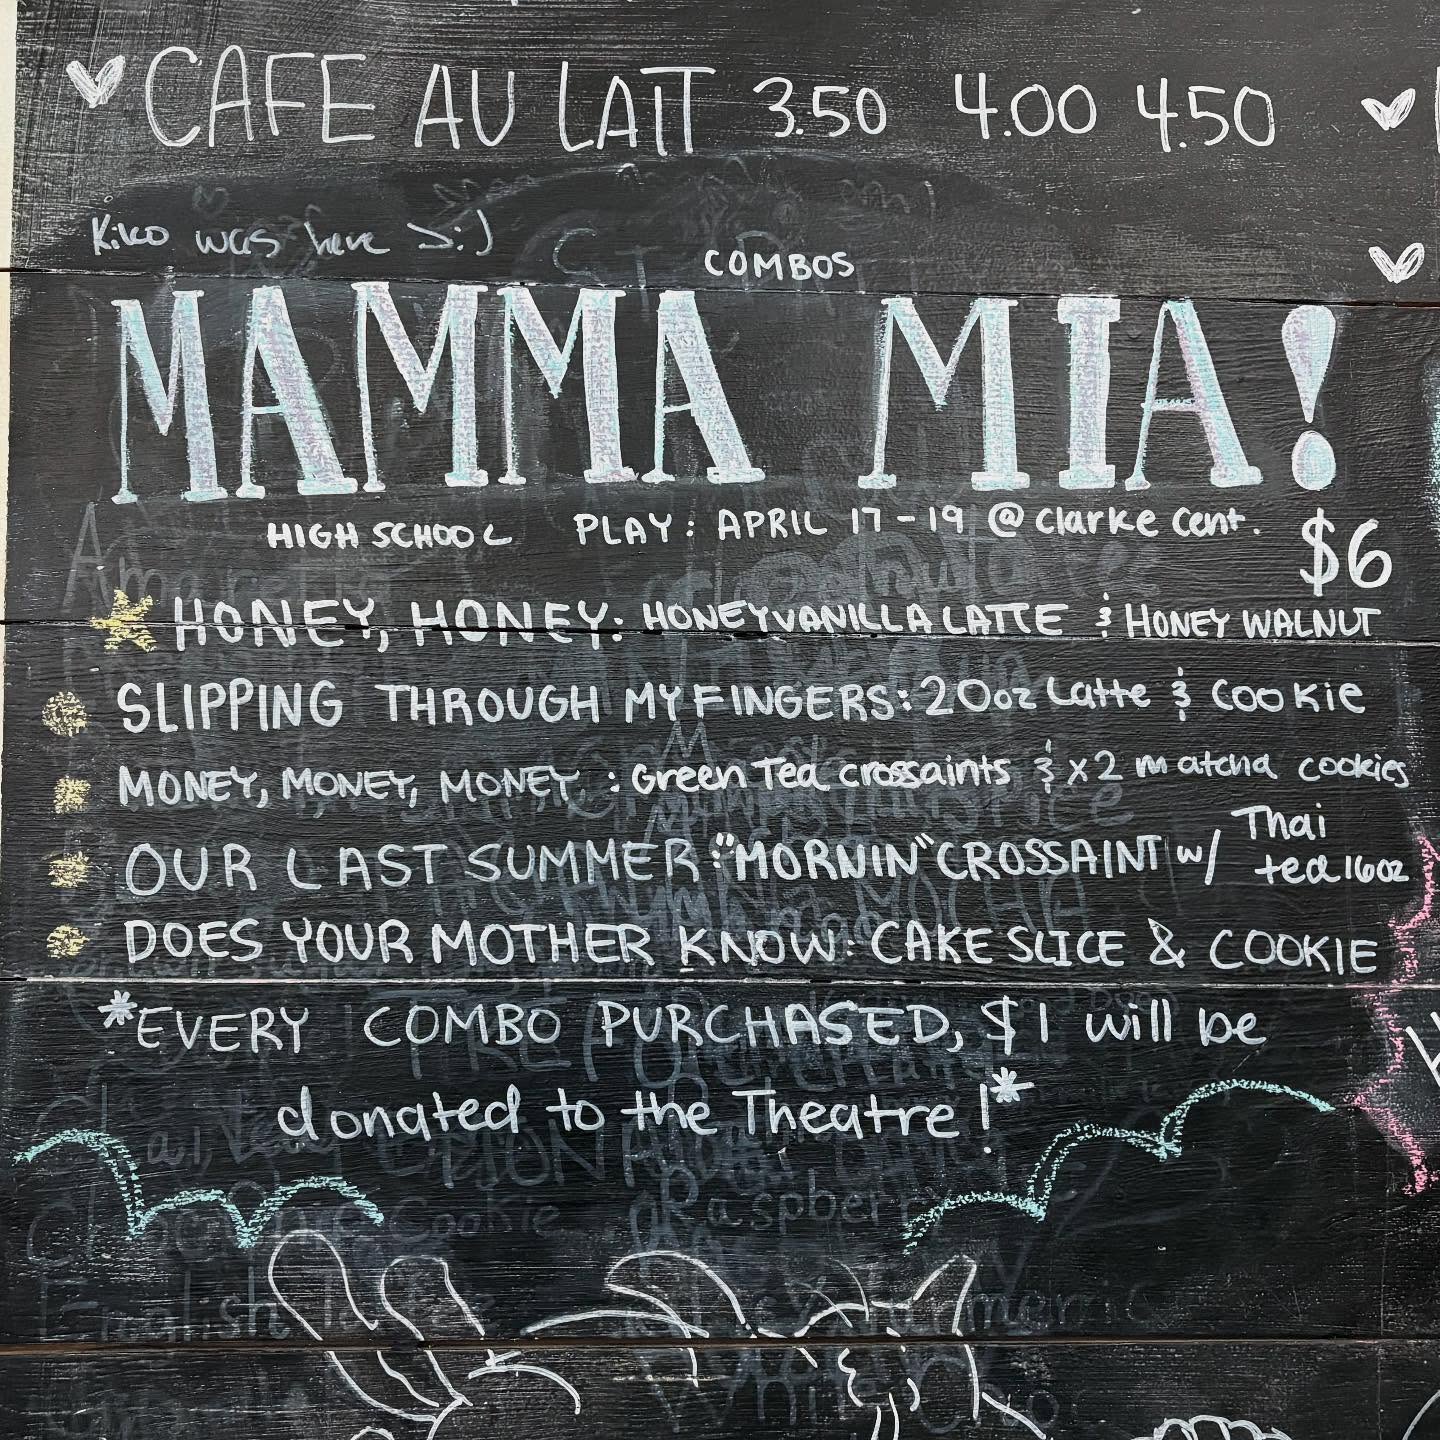 CAFE AU LAIT 3.50 4.00 4.50
Kiko was here >:)
COMBOS
MAMMA MIA!
HIGH SCHOOL PLAY: APRIL 17-19 @ Clarke Cent.
$6
HONEY, HONEY: HONEYVANILLA LATTE & HONEY WALNUT
SLIPPING THROUGH MY FINGERS: 20oz Latte & COOKIE
MONEY, MONEY, MONEY : Green Tea crossaints & x2 matcha cookies
OUR LAST SUMMER: "MORNIN" CROSSAINT w/ Thai
tea 16oz
DOES YOUR MOTHER KNOW: CAKE SLICE & COOKIE
*EVERY COMBO PURCHASED, $1 will be
donated to the Theatre!*
Cookie
Raspberry
English